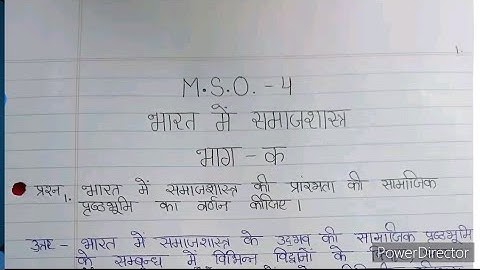 1.
M.S.O. - 4
भारत में समाजशास्त्र
भाग - क
प्रश्न 1. भारत में समाजशास्त्र की प्रारंभता की सामाजिक
पृष्ठभूमि का वर्णन कीजिए।
उत्तर - भारत में समाजशास्त्र के उद्भव की सामाजिक पृष्ठभूमि
के सम्बन्ध में विभिन्न विद्वानों के
PowerDirector